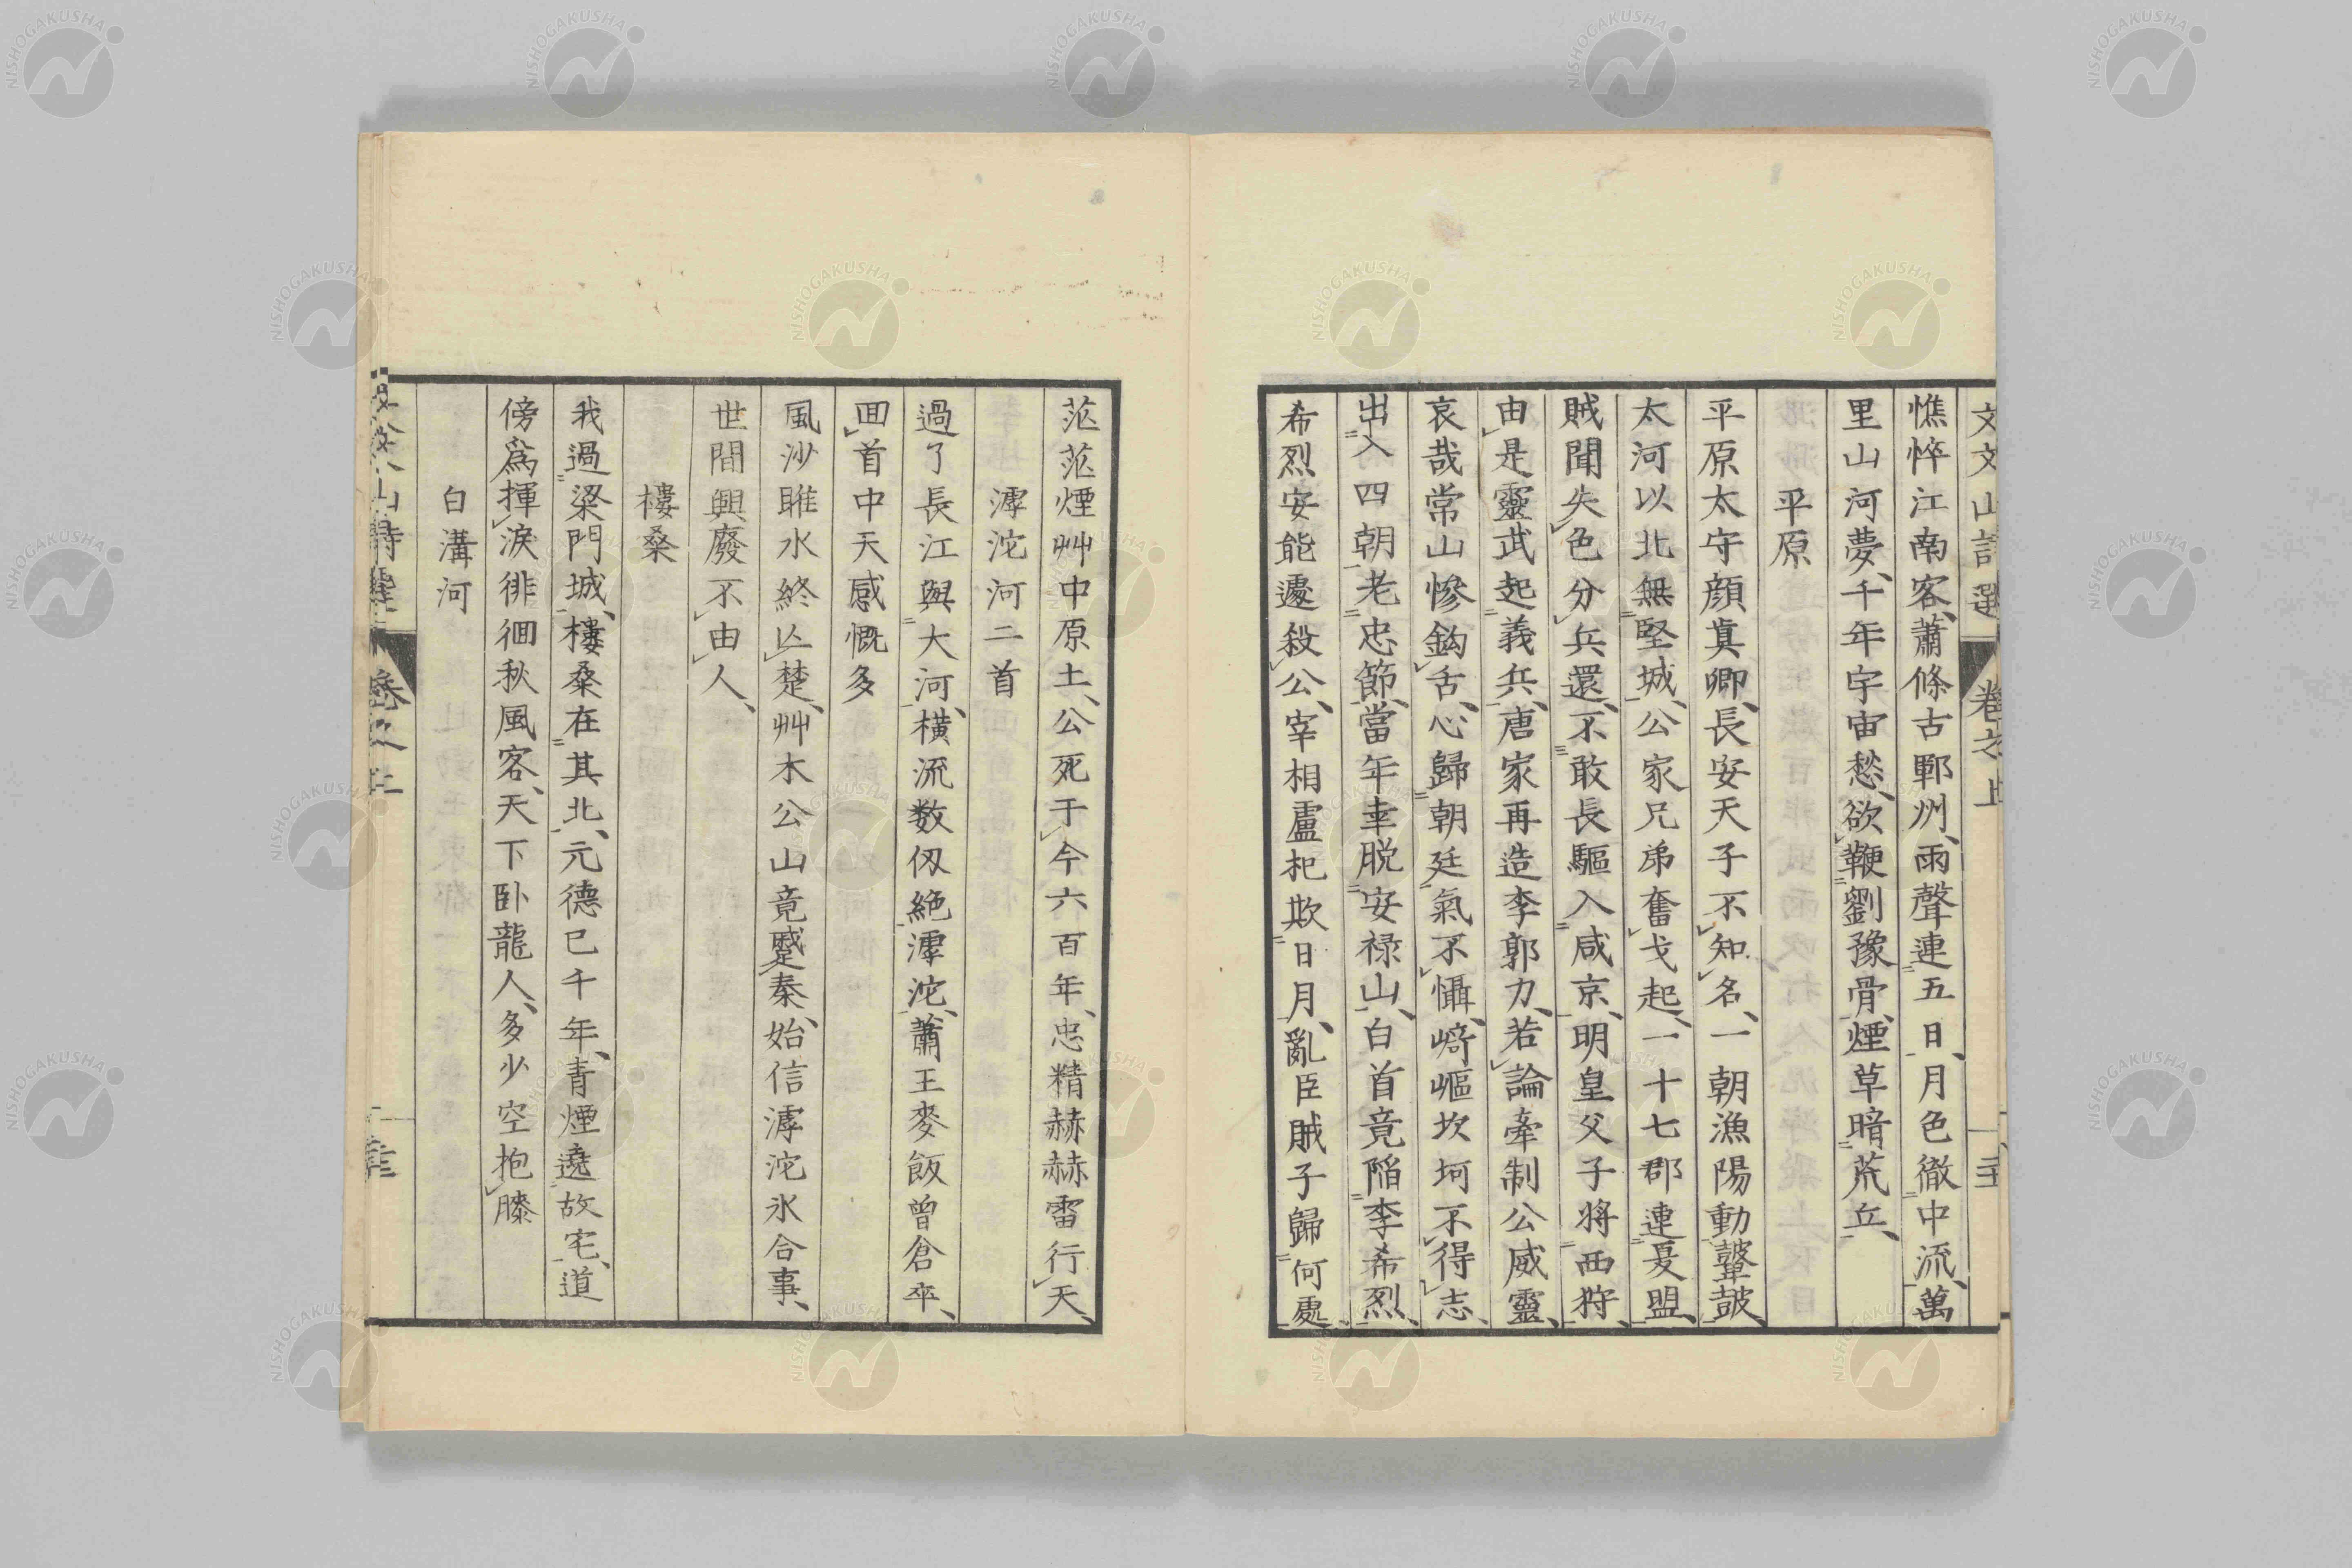 文文山詩選 卷之上
憔悴江南客、蕭條古鄆州、雨聲連五日、月色徹中流、萬
里山河夢、千年宇宙愁、欲鞭劉豫骨、煙草暗荒丘、
平原
平原太守顔眞卿、長安天子不知名、一朝漁陽動鼙鼓、
太河以北無堅城、公家兄弟奮戈起、一十七郡連夏盟、
賊聞失色分兵還、不敢長驅入咸京、明皇父子將西狩、
由是靈武起義兵、唐家再造李郭力、若論牽制公威靈、
哀哉常山慘鈎舌、心歸朝廷氣不懾、崎嶇坎坷不得志、
出入四朝老忠節、當年幸脱安禄山、白首竟陥李希烈、
希烈安能遽殺公、宰相盧杞欺日月、亂臣賊子歸何處、
茫茫煙艸中原土、公死于今六百年、忠精赫赫雷行天、
滹沱河二首
過了長江與大河、横流数仭絶滹沱、蕭王麥飯曾倉卒、
回首中天感慨多
風沙睢水終亾楚、艸木公山竟蹙秦、始信滹沱氷合事、
世間興廢不由人、
樓桑
我過梁門城、樓桑在其北、元德已千年、青煙遶故宅、道
傍爲揮淚徘徊秋風客、天下卧龍人、多少空抱膝
白溝河
卷之上
NISHOGAKUSHA